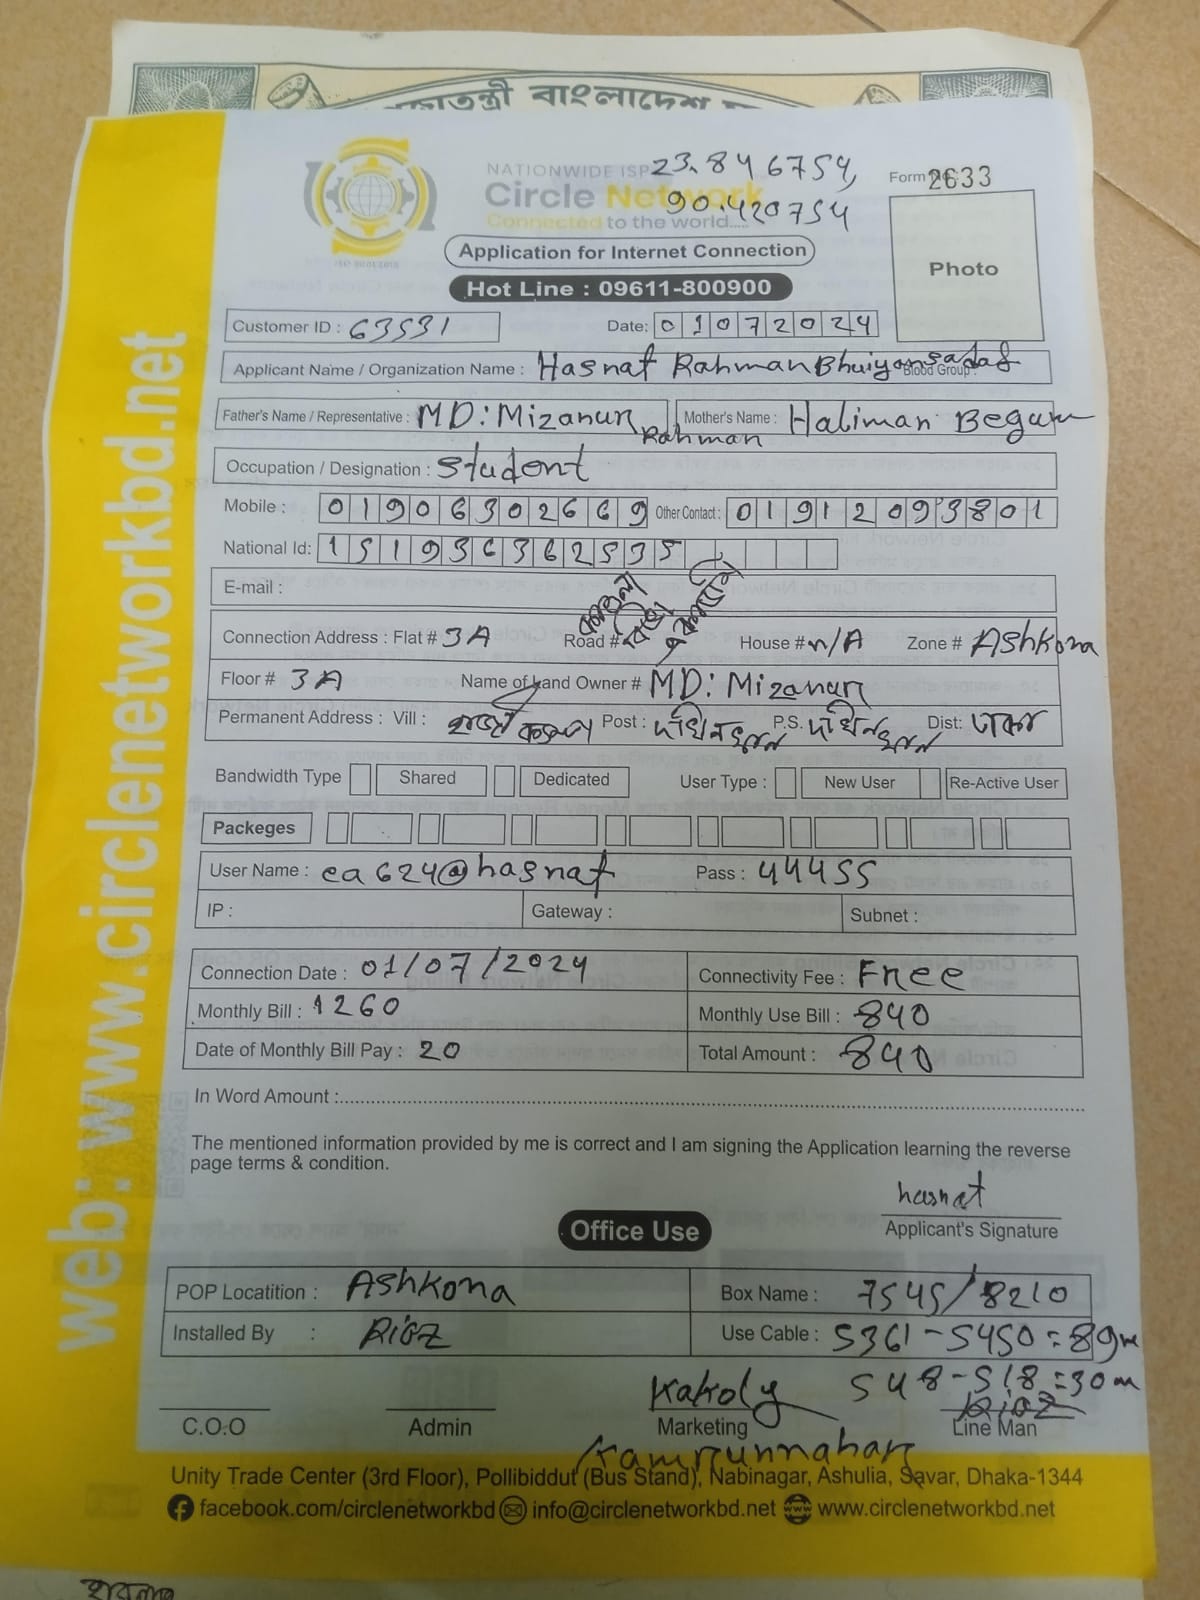 NATIONWIDE ISP 23.846754,
Circle Network 90.420754
Connected to the world....
Form No. 2633
Application for Internet Connection
Photo
Hot Line : 09611-800900
Customer ID : 63531 Date: 01072024
Applicant Name / Organization Name : Hasnat Rahman Bhuiyan sadaf Blood Group:
Father's Name / Representative : MD: Mizanur Rahman Mother's Name : Haliman Begum
Occupation / Designation : Student
Mobile : 01906302669 Other Contact : 01912093801
National Id: 151936362535
E-mail :
Connection Address : Flat # 3A Road # House # n/A Zone # Ashkona
Floor # 3A Name of Land Owner # MD: Mizanur
Permanent Address : Vill : Post : P.S. Dist: ঢাকা
Bandwidth Type Shared Dedicated User Type : New User Re-Active User
Packeges
User Name : ea624@hasnat Pass : 44455
IP : Gateway : Subnet :
Connection Date : 01/07/2024 Connectivity Fee : Free
Monthly Bill : 1260 Monthly Use Bill : 840
Date of Monthly Bill Pay : 20 Total Amount : 840
In Word Amount :
The mentioned information provided by me is correct and I am signing the Application learning the reverse
page terms & condition.
hasnat
Applicant's Signature
Office Use
POP Locatition : Ashkona Box Name : 7545/8210
Installed By : Riaz Use Cable : 5361-5450=89m
548-518=30m
Kakoly Riaz
C.O.O Admin Marketing Line Man
Kamrunnahar
Unity Trade Center (3rd Floor), Pollibiddut (Bus Stand), Nabinagar, Ashulia, Savar, Dhaka-1344
facebook.com/circlenetworkbd info@circlenetworkbd.net www.circlenetworkbd.net
web: www.circlenetworkbd.net